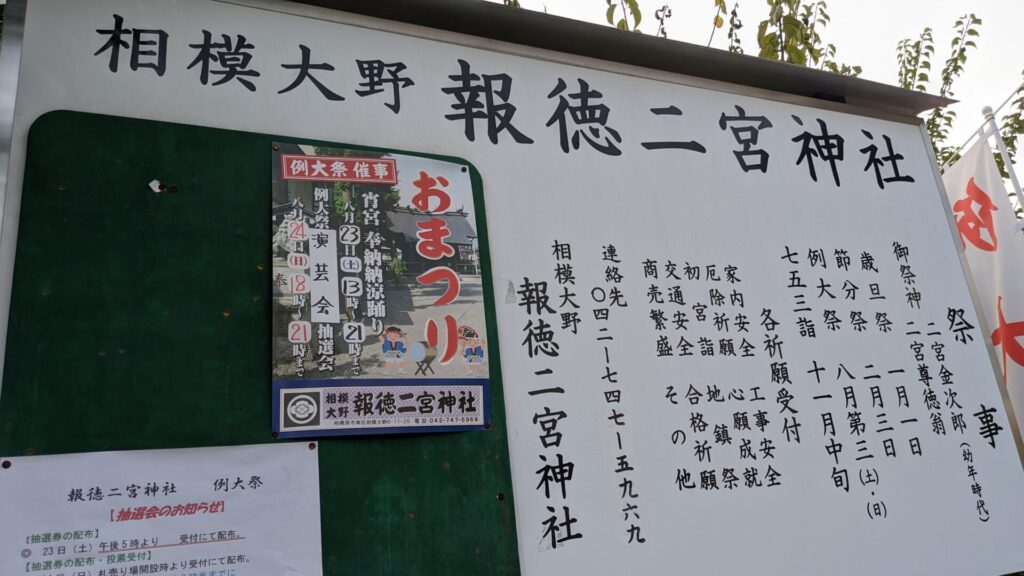 相模大野 報徳二宮神社
祭事
御祭神 二宮金次郎(幼年時代)
二宮尊徳翁
歳旦祭 一月一日
節分祭 二月三日
例大祭 八月第三(土)・(日)
七五三詣 十一月中旬
各祈願受付
家内安全 工事安全
厄除祈願 心願成就
初宮詣 地鎮祭
交通安全 合格祈願
商売繁盛 その他
連絡先 〇四二ー七四七ー五九六九
相模大野
報徳二宮神社
例大祭 催事
おまつり
宵宮 奉納盆踊り
八月23日(土)13時~21時まで
例大祭 演芸会 抽選会
八月24日(日)18時~21時まで
相模
大野 報徳二宮神社
相模原市南区相模大野6-11-25 電話 042-747-5969
報徳二宮神社 例大祭
【抽選会のお知らせ】
【抽選券の配布】
◎ 23日(土)午後5時より 受付にて配布。
【抽選券の配布・投票受付】
日(日)札売り場開設時より受付にて配布。